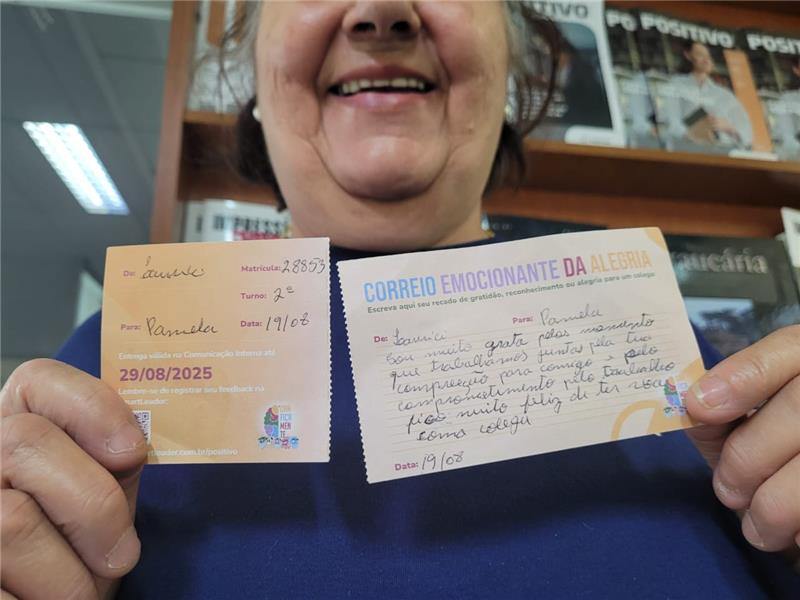 POSITIVO
PO
POSITIVO
POSIT
aucária
De:
Matrícula: 28853
Turno: 2ª
Para: Pamela
Data: 19/08
Entrega válida na Comunicação Interna até
29/08/2025
Lembre-se de registrar seu feedback na
martLeader:
artleader.com.br/positivo
CORREIO EMOCIONANTE DA ALEGRIA
Escreva aqui seu recado de gratidão, reconhecimento ou alegria para um colega:
De: Para: Pamela
Sou muito grata pelos momento
que trabalhamos juntas pela tua
compreeção para comigo e pelo
comprometimento pelo trabalho
fico muito feliz di ter você
como colega
Data: 19/08